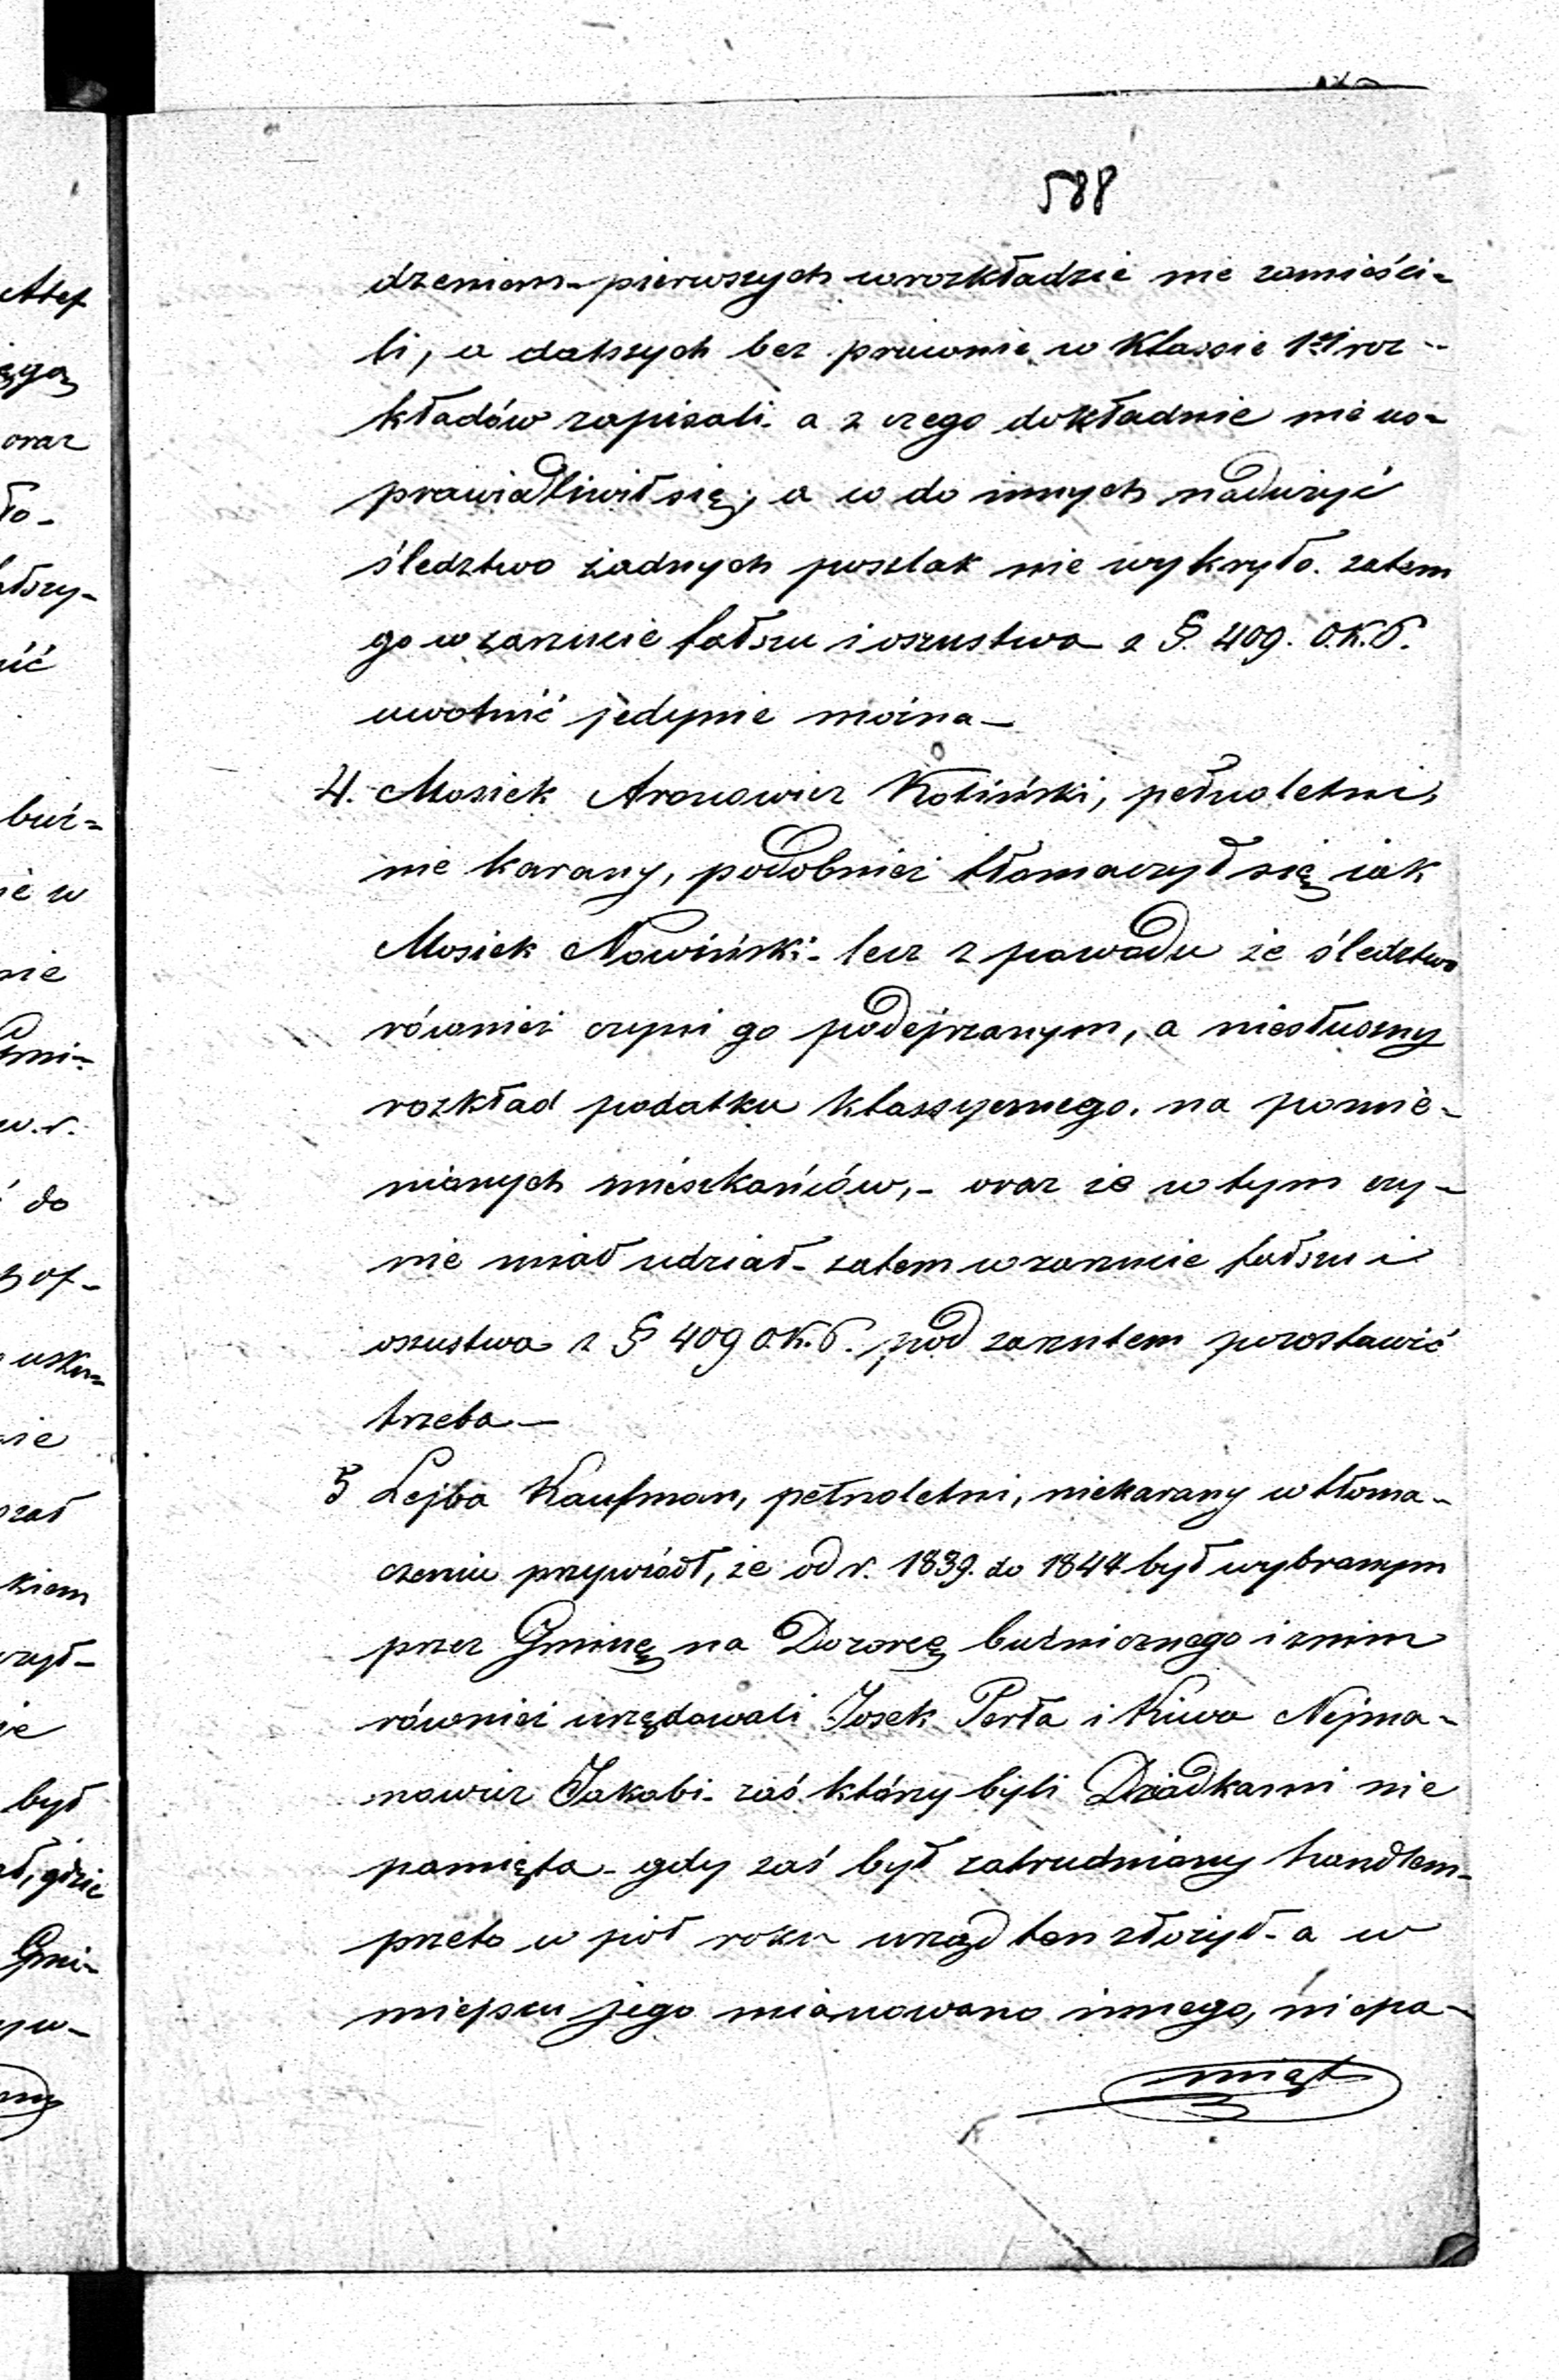 588
dzeniem - pierwszych w rozkładzie nie zamieści-
li, a dalszych bez prawnie w Klassie 1ej roz-
kładów zapisali - a z czego dokładnie nie us-
prawiedliwił się; a co do innych nadużyć
śledztwo żadnych poszlak nie wykryło. zatem
go w zarzucie fałszu i oszustwa z §. 409. O.K.P.
uwolnić jedynie można —
4. Mosiek Aronowicz Koliński, pełnoletni,
nie karany, podobnież tłomaczył się iak
Mosiek Nowiński - lecz z powodu że śledztwo
również czyni go podejrzanym, a niesłuszny
rozkład podatku klassycznego. na pomie-
nionych mieszkańców, - oraz że w tym czy-
nie miał udział - zatem w zarzucie fałszu i
oszustwa z § 409 O.K.P. pod zarzutem pozostawić
trzeba —
5 Lejba Kaufman, pełnoletni, niekarany w tłoma-
czeniu przywiódł, że od r. 1839. do 1844 był wybranym
przez Gminę na Dozorcę bużnicznego i z nim
również urzędowali Josek Perła i Kiwa Nejma-
nowicz Jakobi - zaś którzy byli Dziadkami nie
pamięta - gdy zaś był zatrudniony handlem -
przeto w pół roku urząd ten złożył - a w
miejscu jego mianowano innego, niepa-
mięt